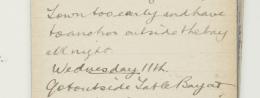 Town too early and have
to anchor outside the bay
all night.
Wednesday 11th.
Got outside Table Bay at